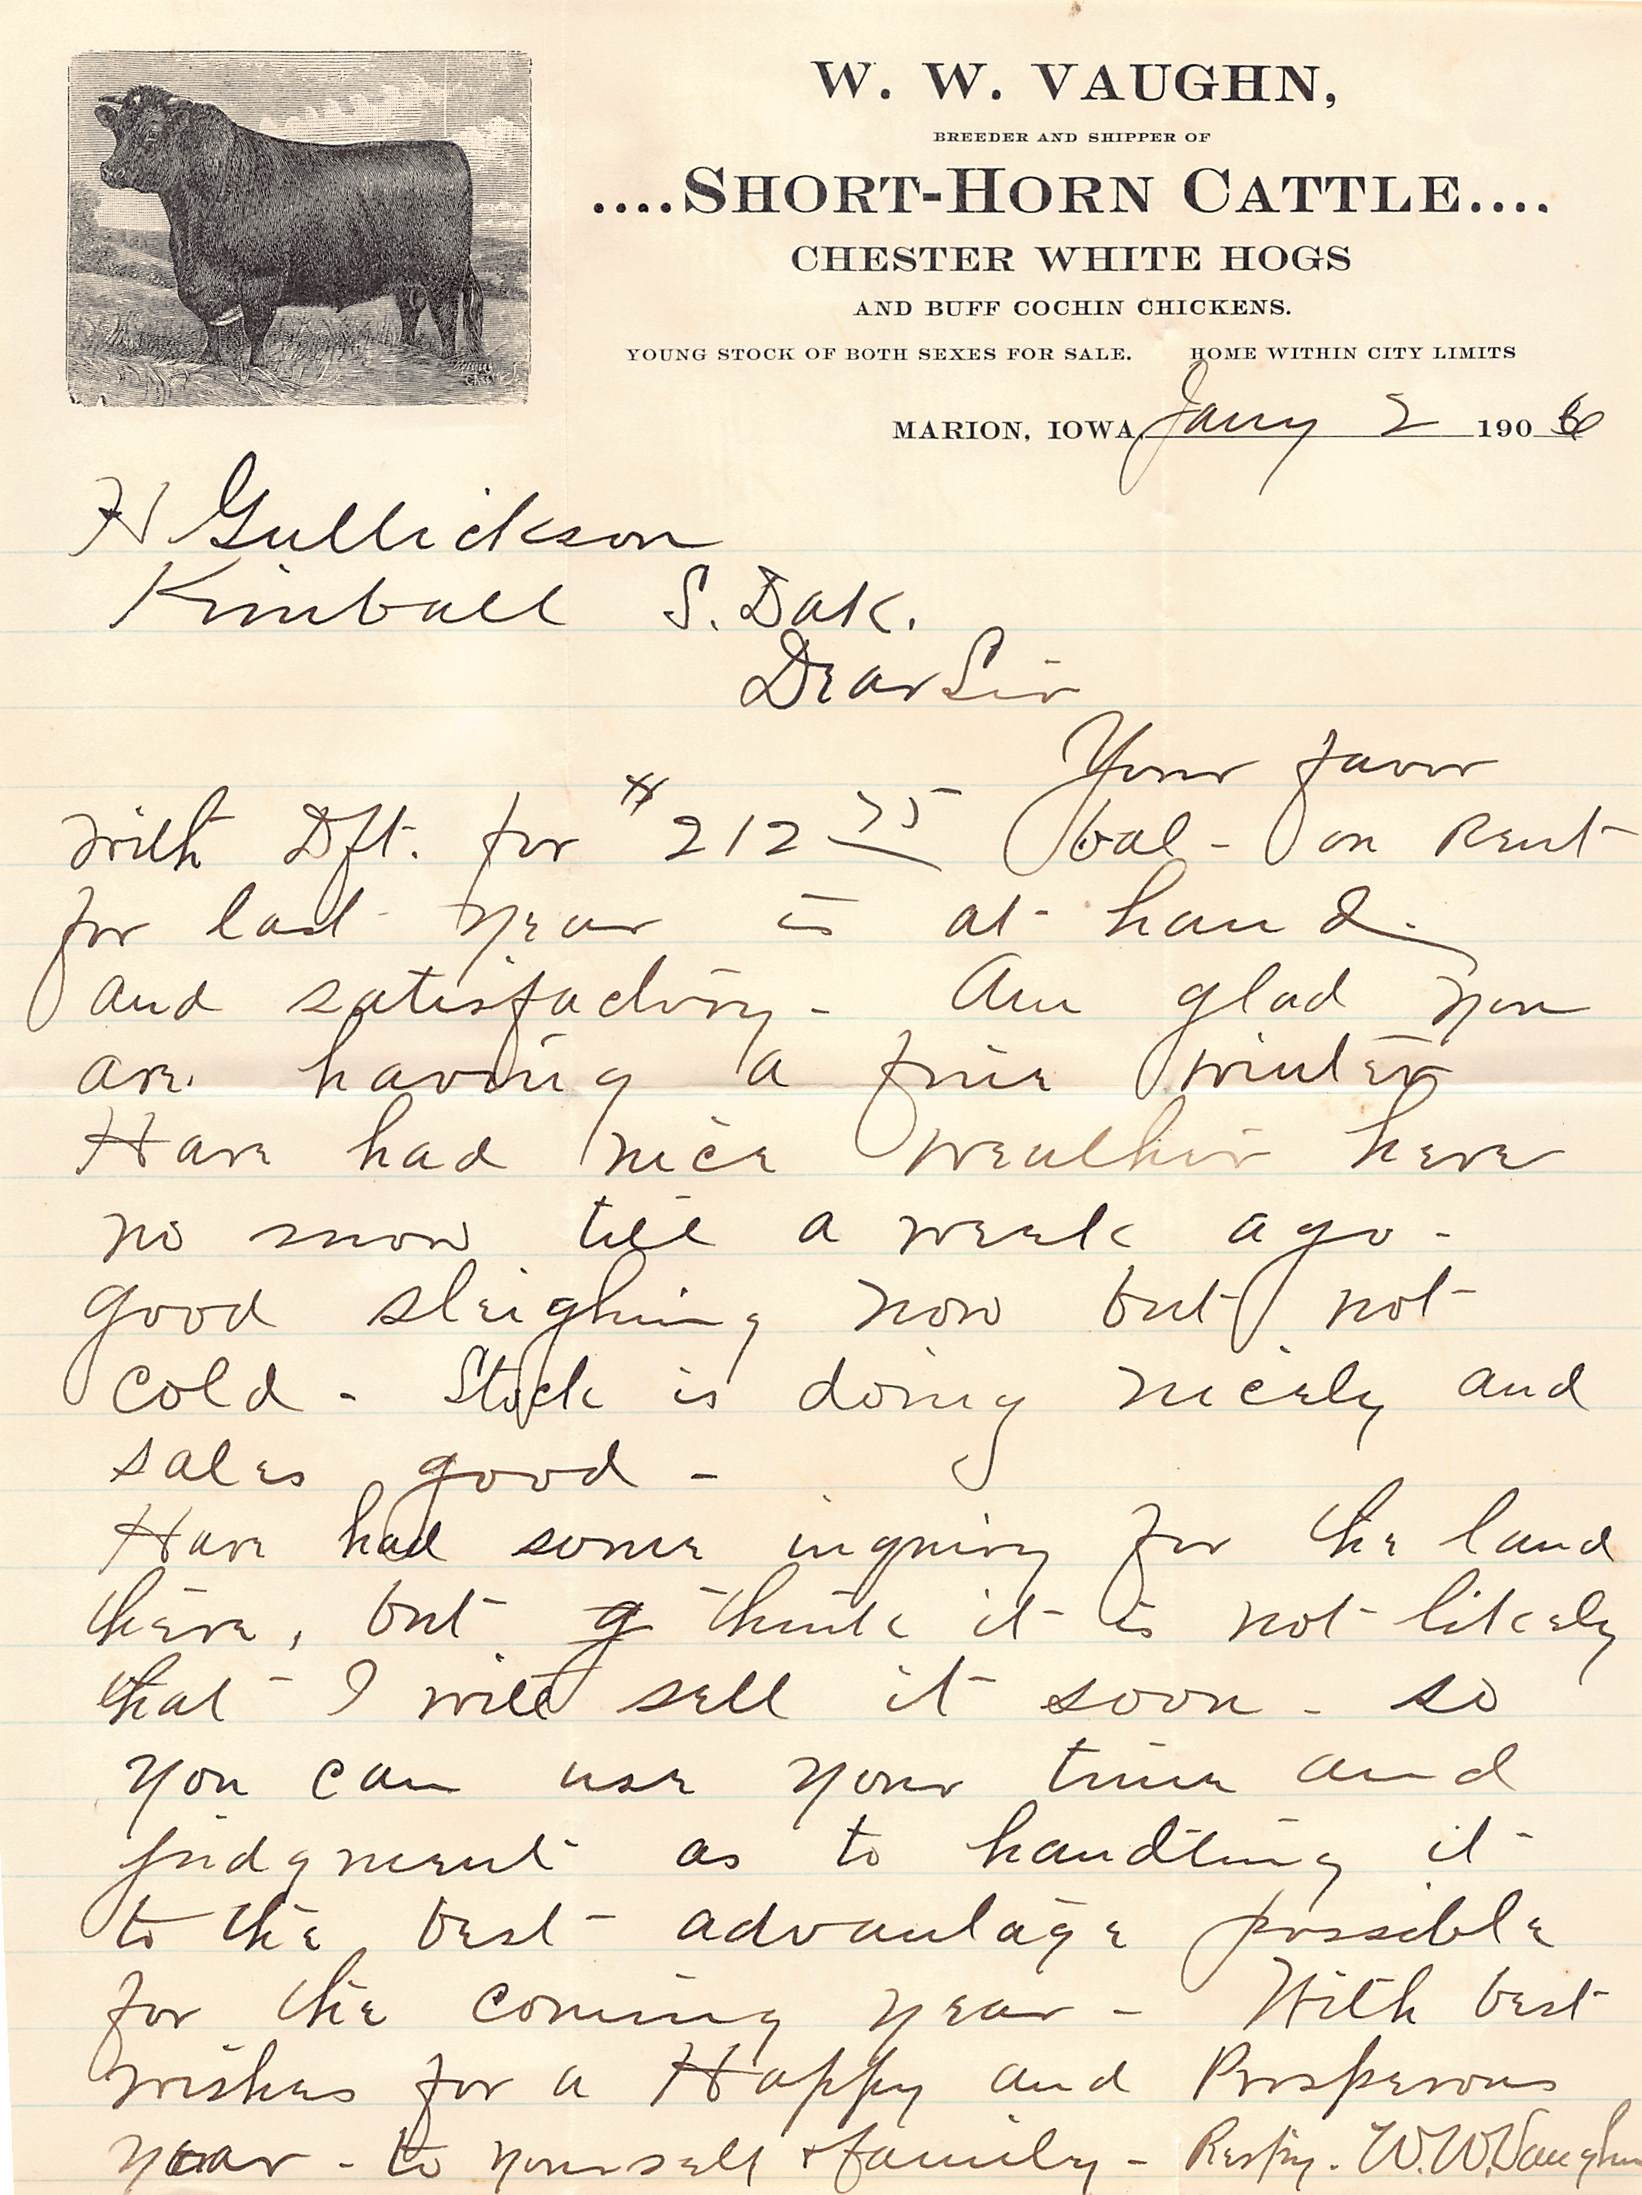 W. W. VAUGHN,
BREEDER AND SHIPPER OF
....SHORT-HORN CATTLE....
CHESTER WHITE HOGS
AND BUFF COCHIN CHICKENS.
YOUNG STOCK OF BOTH SEXES FOR SALE. HOME WITHIN CITY LIMITS
MARION, IOWA, Jany 2 1906
H Gullickson
Kimball S. Dak.
Dear Sir
Your favor
with Dft. for $212 75 bal - on Rent
for last year is at hand.
and satisfactory - Am glad you
are having a fine winter
Have had nice weather here
no snow till a week ago -
good sleighing now but not
cold - Stock is doing nicely and
sales good -
Have had some inquiry for the land
there, but I think it is not likely
that I will sell it soon - so
you can use your time and
judgment as to handling it
to the best advantage possible
for the coming year - With best
wishes for a Happy and Prosperous
year - to yourself & family - Respy. W.W. Vaughn